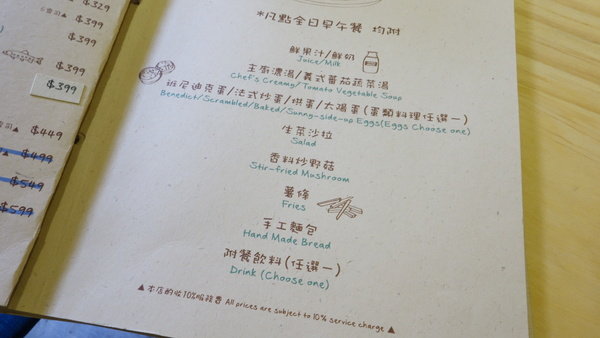 $329
$399
$399
$399
$449
$499
$549
$599
*凡點全日早午餐 均附
鮮果汁/鮮奶
Juice/Milk
主廚濃湯/義式蕃茄蔬菜湯
Chef's Creamy/Tomato Vegetable Soup
班尼迪克蛋/法式炒蛋/烘蛋/太陽蛋(蛋類料理任選一)
Benedict/Scrambled/Baked/Sunny-side-up Eggs(Eggs Choose one)
生菜沙拉
Salad
香料炒野菇
Stir-fried Mushroom
薯條
Fries
手工麵包
Hand Made Bread
附餐飲料(任選一)
Drink (Choose one)
▲本店酌收10%服務費 All prices are subject to 10% service charge▲